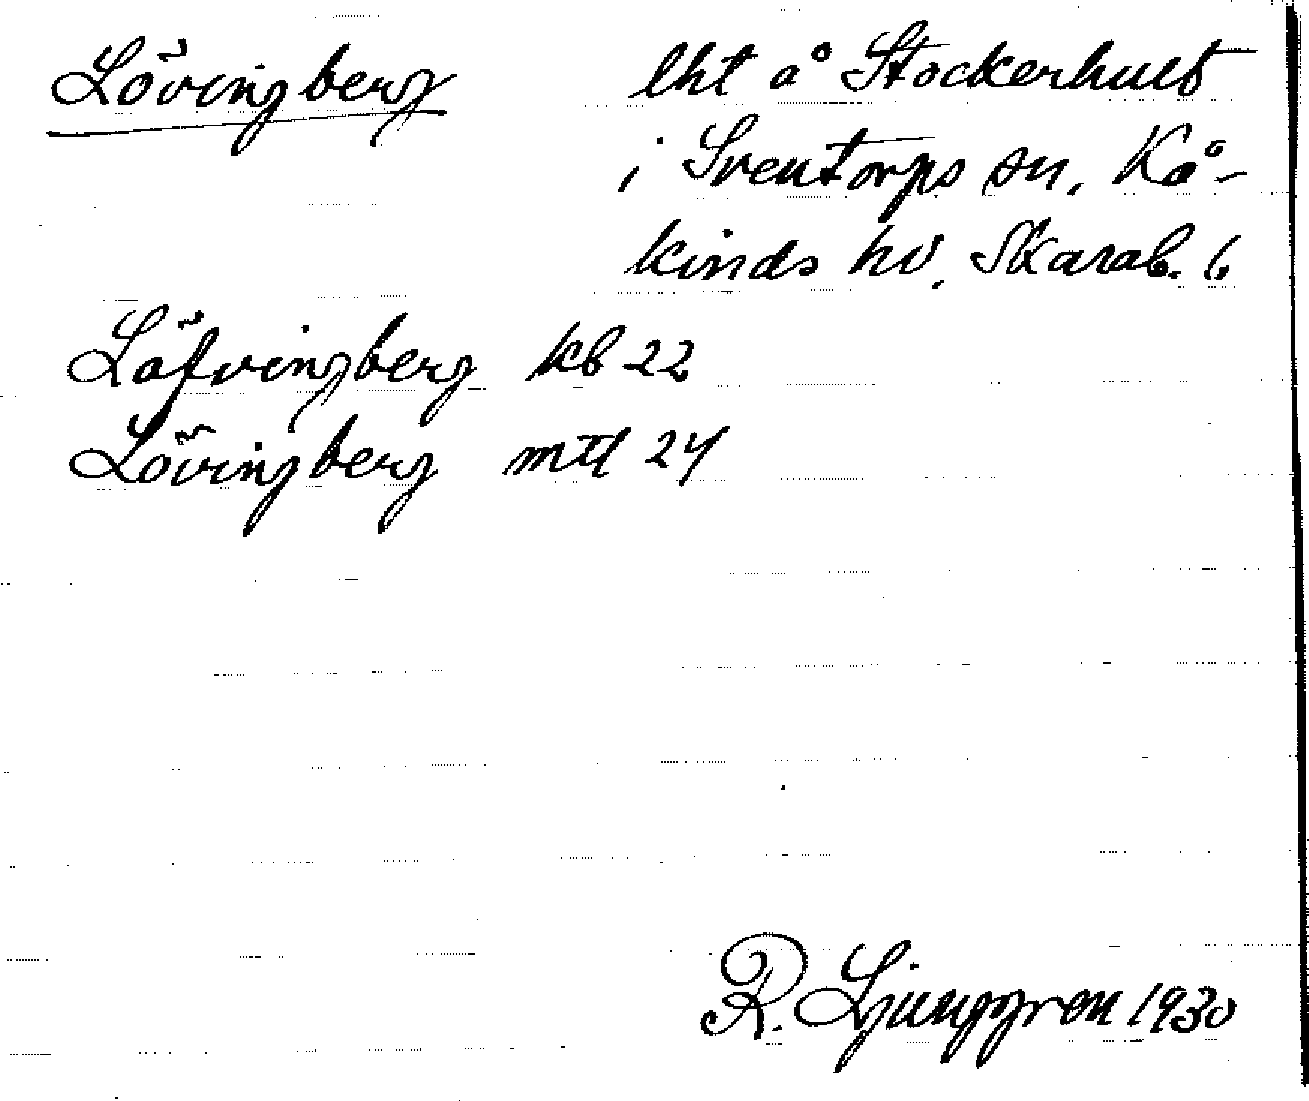 Lövingberg lht å Stockerhult
i Sventorps sn. Kå-
kinds hd. Skarab. l.
Löfvingberg kb 22
Lövingberg mtl 24
R. Ljunggren 1930